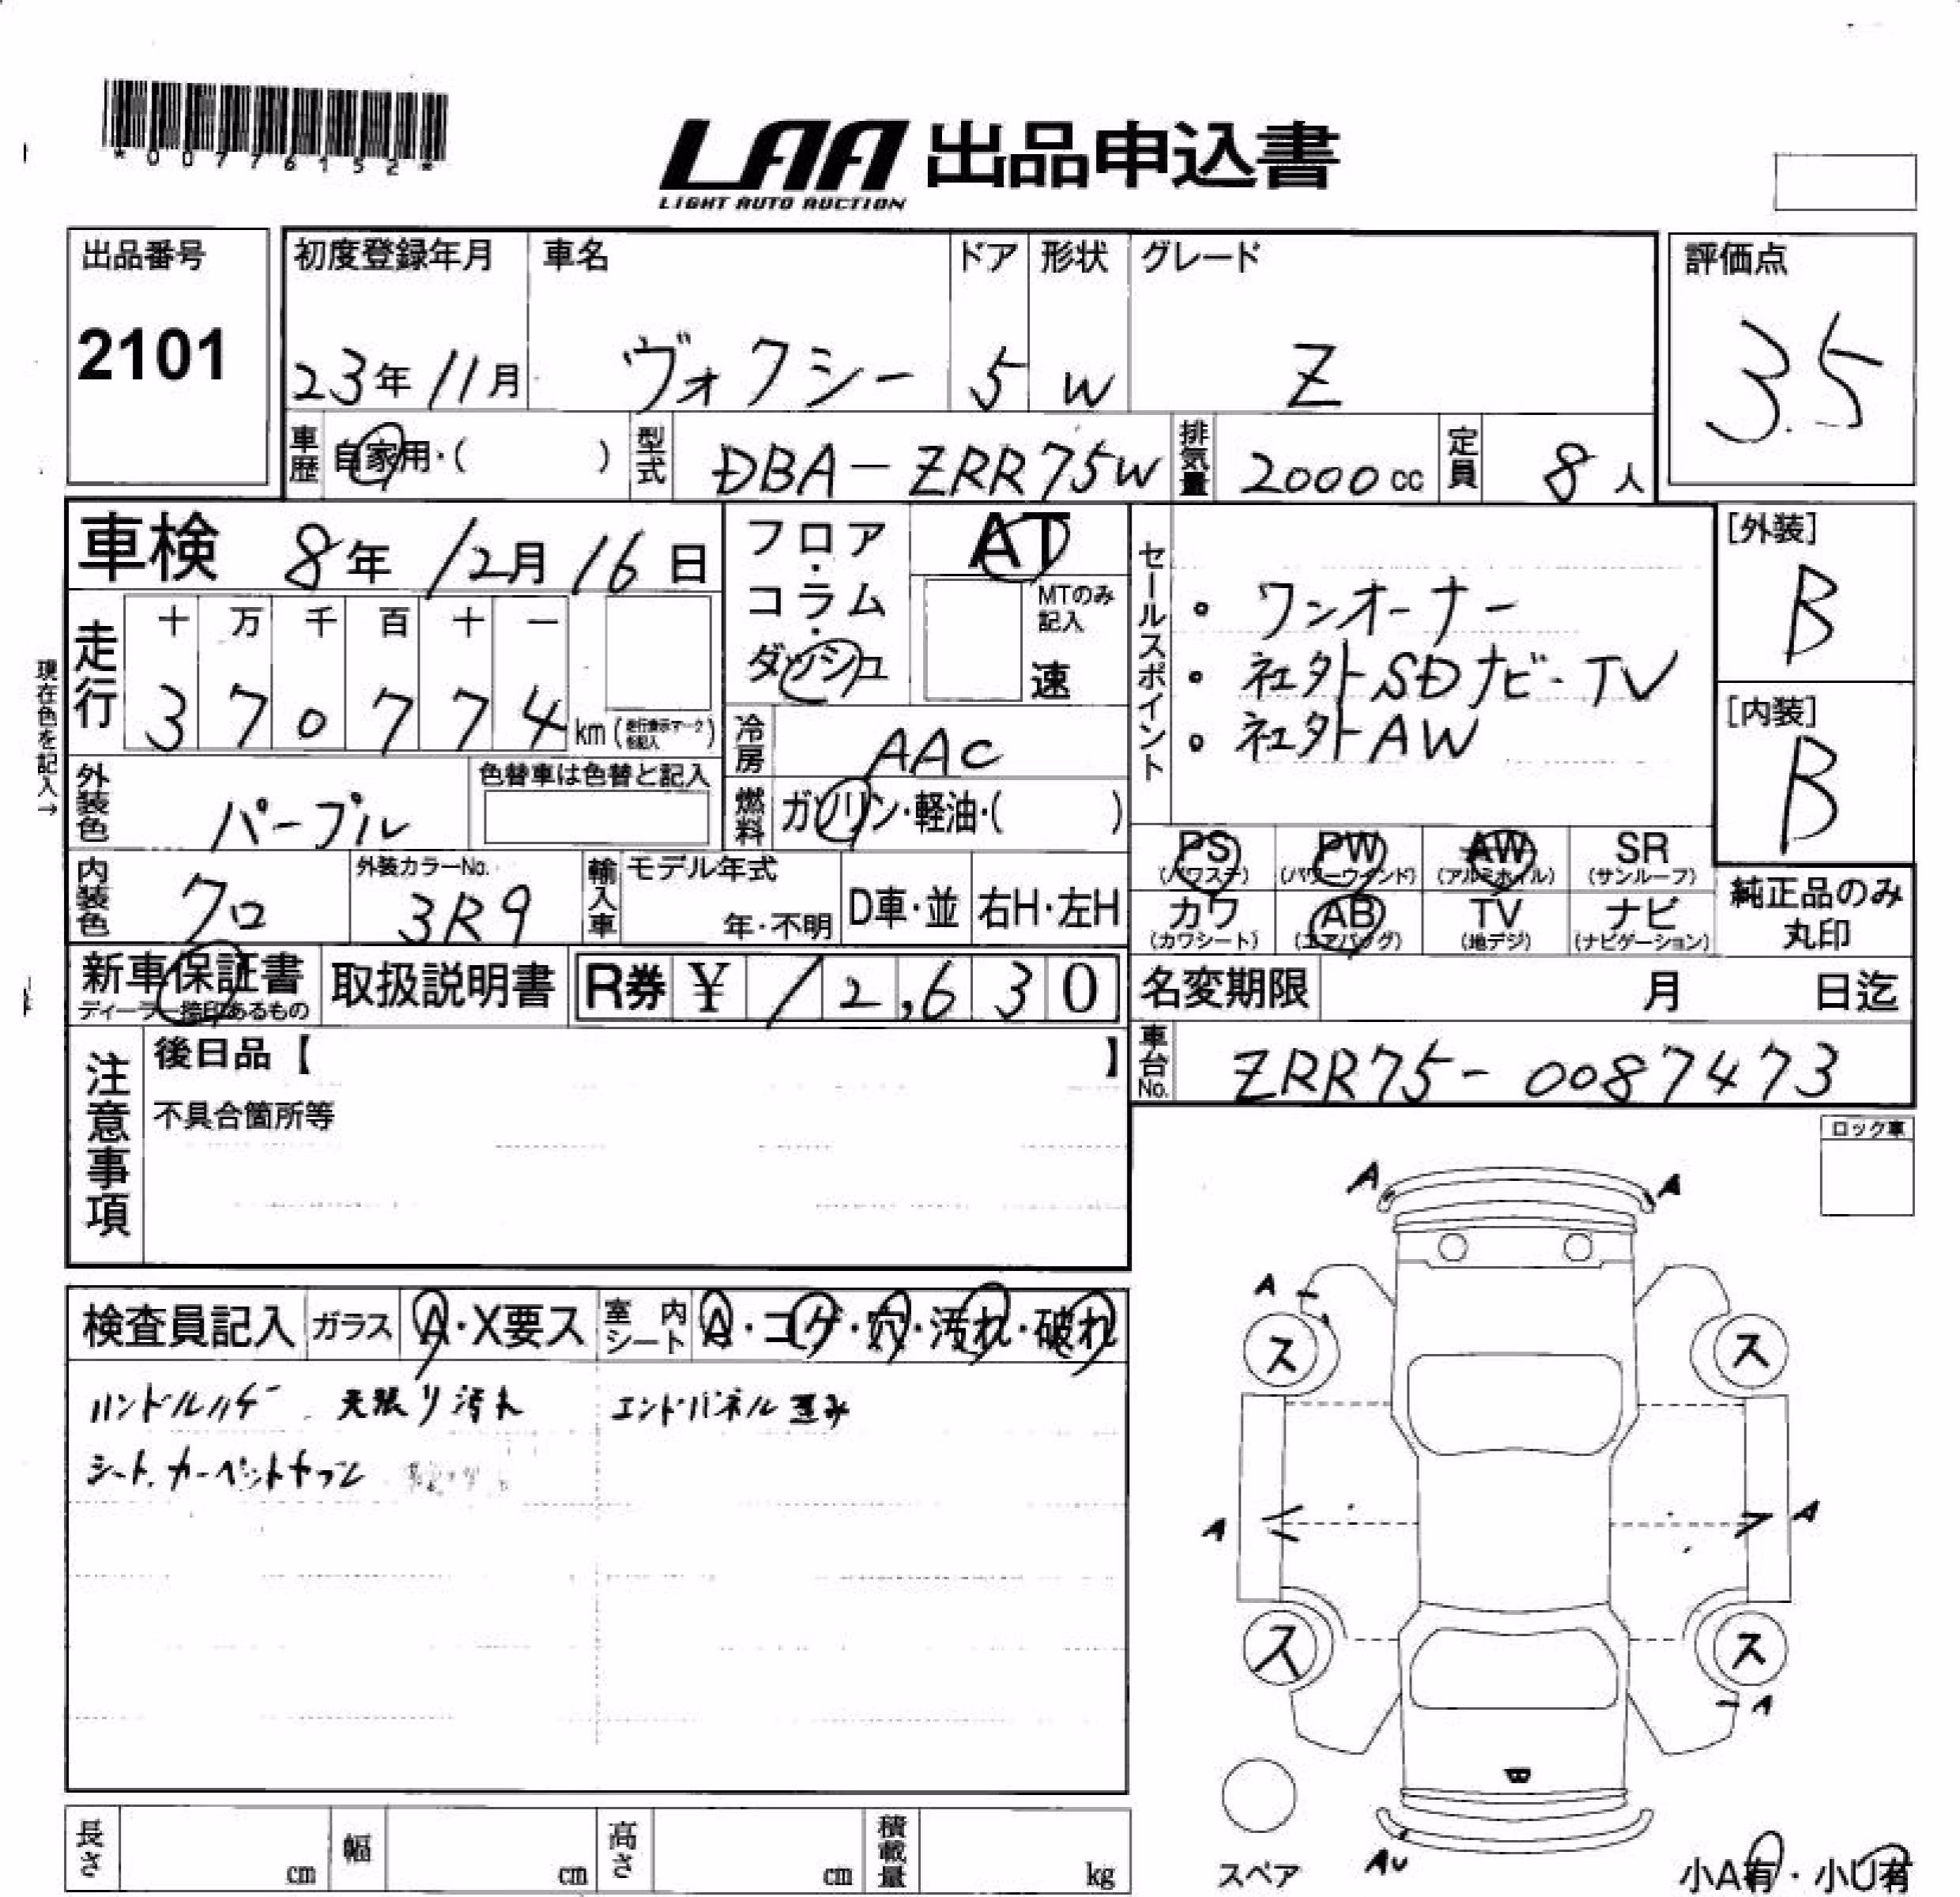 *00776152*
LAA 出品申込書
LIGHT AUTO AUCTION
出品番号
2101
初度登録年月
23年11月
車名
ヴォクシー
ドア
5
形状
W
グレード
Z
評価点
3.5
車歴
自家用・( )
型式
DBA-ZRR75W
排気量
2000cc
定員
8人
車検 8年12月16日
フロア・コラム・ダッシュ
AT
MTのみ記入
速
セールスポイント
・ワンオーナー
・社外SDナビ・TV
・社外AW
[外装]
B
[内装]
B
現在色を記入→
走行
十 万 千 百 十 一
3 7 0 7 7 4 km (走行表示マークを記入)
冷房
AAC
燃料
ガソリン・軽油・( )
外装色
パープル
色替車は色替と記入
内装色
クロ
外装カラーNo.
3R9
輸入車
モデル年式
年・不明
D車・並
右H・左H
PS (パワステ)
PW (パワーウインド)
AW (アルミホイル)
SR (サンルーフ)
カワ (カワシート)
AB (エアバッグ)
TV (地デジ)
ナビ (ナビゲーション)
純正品のみ
丸印
新車保証書
ディーラー捺印あるもの
取扱説明書
R券 ¥ 12,630
名変期限 月 日迄
車台No.
ZRR75-0087473
注意事項
後日品【 】
不具合箇所等
ロック車
検査員記入
ガラス
A・X要ス
室内シート
A・コゲ・穴・汚れ・破れ
ハンドルハゲ 天張り汚れ エンドパネル歪み
シート、カーペットキズ
A A
A
ス ス
A A
ス ス
A
B
AU
スペア
小A有・小U有
長さ cm
幅 cm
高さ cm
積載量 kg